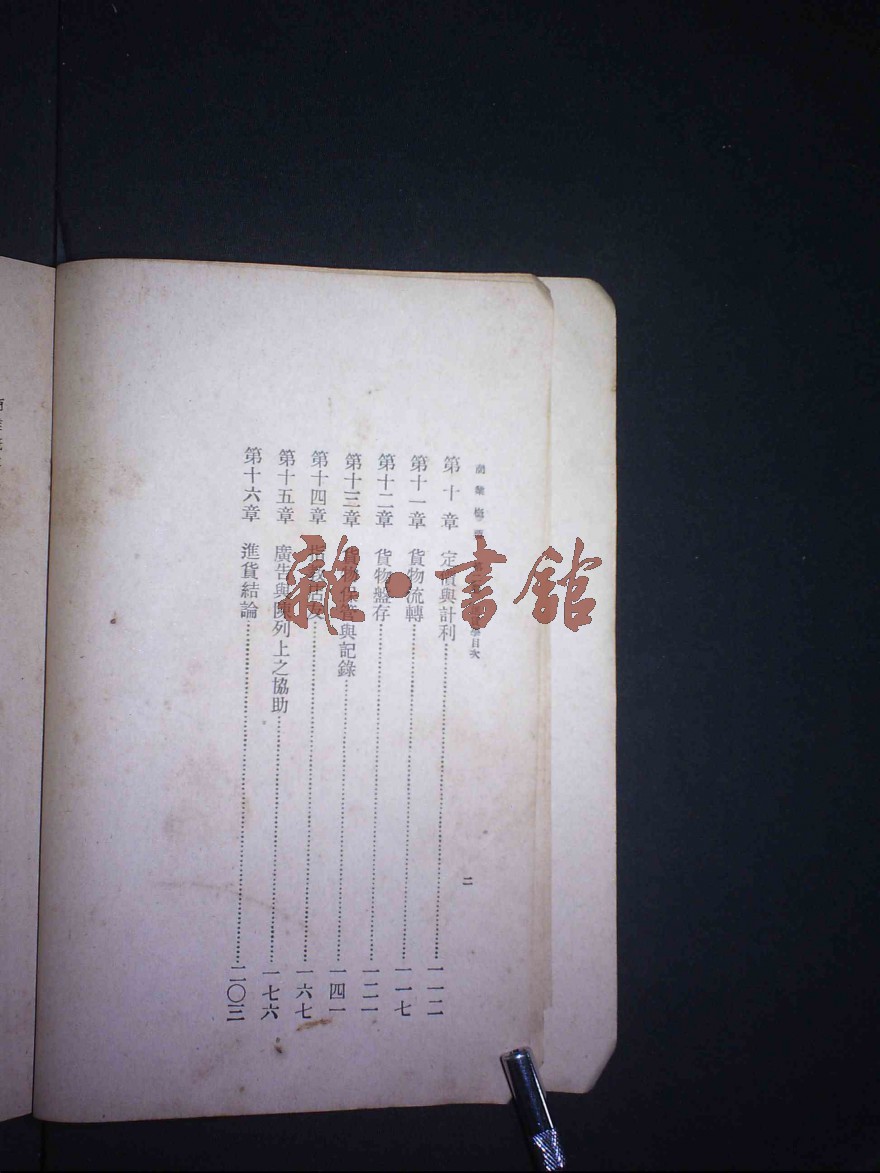 商業概要 目次
二
第十章 定價與計利 一一二
第十一章 貨物流轉 一一七
第十二章 貨物盤存 一二一
第十三章 貨物保管與記錄 一四一
第十四章 指教店友 一六七
第十五章 廣告與陳列上之協助 一七六
第十六章 進貨結論 二〇三
雜·書館